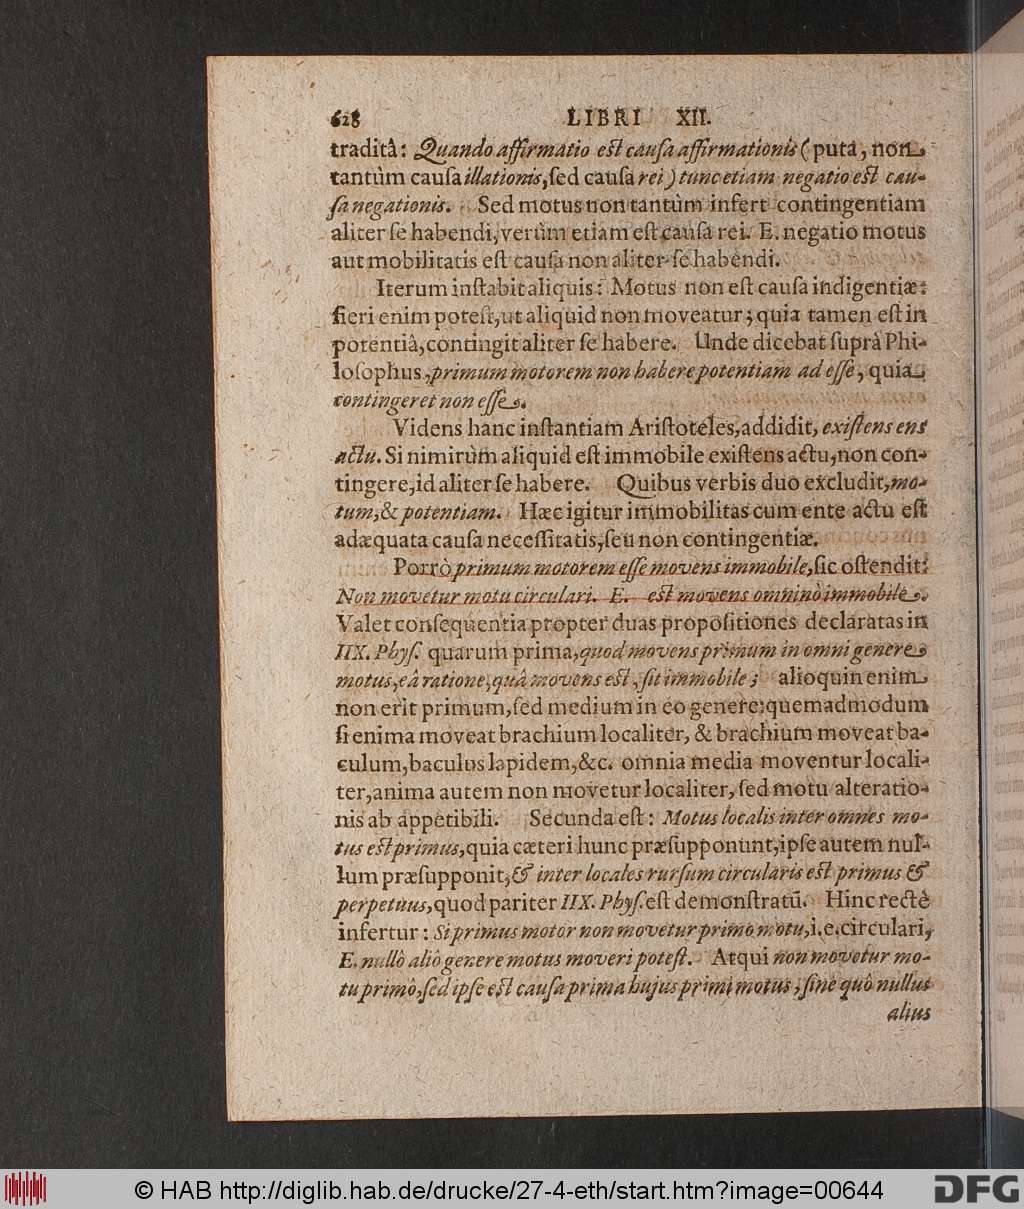 628 LIBRI XII.
traditâ: Quando affirmatio est causa affirmationis (puta, non
tantùm causa illationis, sed causa rei) tunc etiam negatio est cau-
sa negationis. Sed motus non tantùm infert contingentiam
aliter se habendi, verùm etiam est causa rei. E. negatio motus
aut mobilitatis est causa non aliter se habendi.
Iterum instabit aliquis: Motus non est causa indigentiæ:
fieri enim potest, ut aliquid non moveatur; quia tamen est in
potentiâ, contingit aliter se habere. Unde dicebat suprà Phi-
losophus, primum motorem non habere potentiam ad esse, quia
contingeret non esse.
Videns hanc instantiam Aristoteles, addidit, existens ens
actu. Si nimirùm aliquid est immobile existens actu, non con-
tingere, id aliter se habere. Quibus verbis duo excludit, mo-
tum, & potentiam. Hæc igitur immobilitas cum ente actu est
adæquata causa necessitatis, seu non contingentiæ.
Porrò primum motorem esse movens immobile, sic ostendit:
Non movetur motu circulari. E. est movens omninò immobile.
Valet consequentia propter duas propositiones declaratas in
IIX. Phys. quarum prima, quod movens primum in omni genere
motus, eâ ratione, quâ movens est, sit immobile; alioquin enim
non erit primum, sed medium in eo genere: quemadmodum
si enima moveat brachium localiter, & brachium moveat ba-
culum, baculus lapidem, &c. omnia media moventur locali-
ter, anima autem non movetur localiter, sed motu alteratio-
nis ab appetibili. Secunda est: Motus localis inter omnes mo-
tus est primus, quia cæteri hunc præsupponunt, ipse autem nul-
lum præsupponit, & inter locales rursum circularis est primus &
perpetuus, quod pariter IIX. Phys. est demonstratū. Hinc rectè
infertur: Si primus motor non movetur primo motu, i.e. circulari,
E. nullô aliô genere motus moveri potest. Atqui non movetur mo-
tu primô, sed ipse est causa prima hujus primi motus; sine quô nullus
alius
© HAB http://diglib.hab.de/drucke/27-4-eth/start.htm?image=00644 DFG